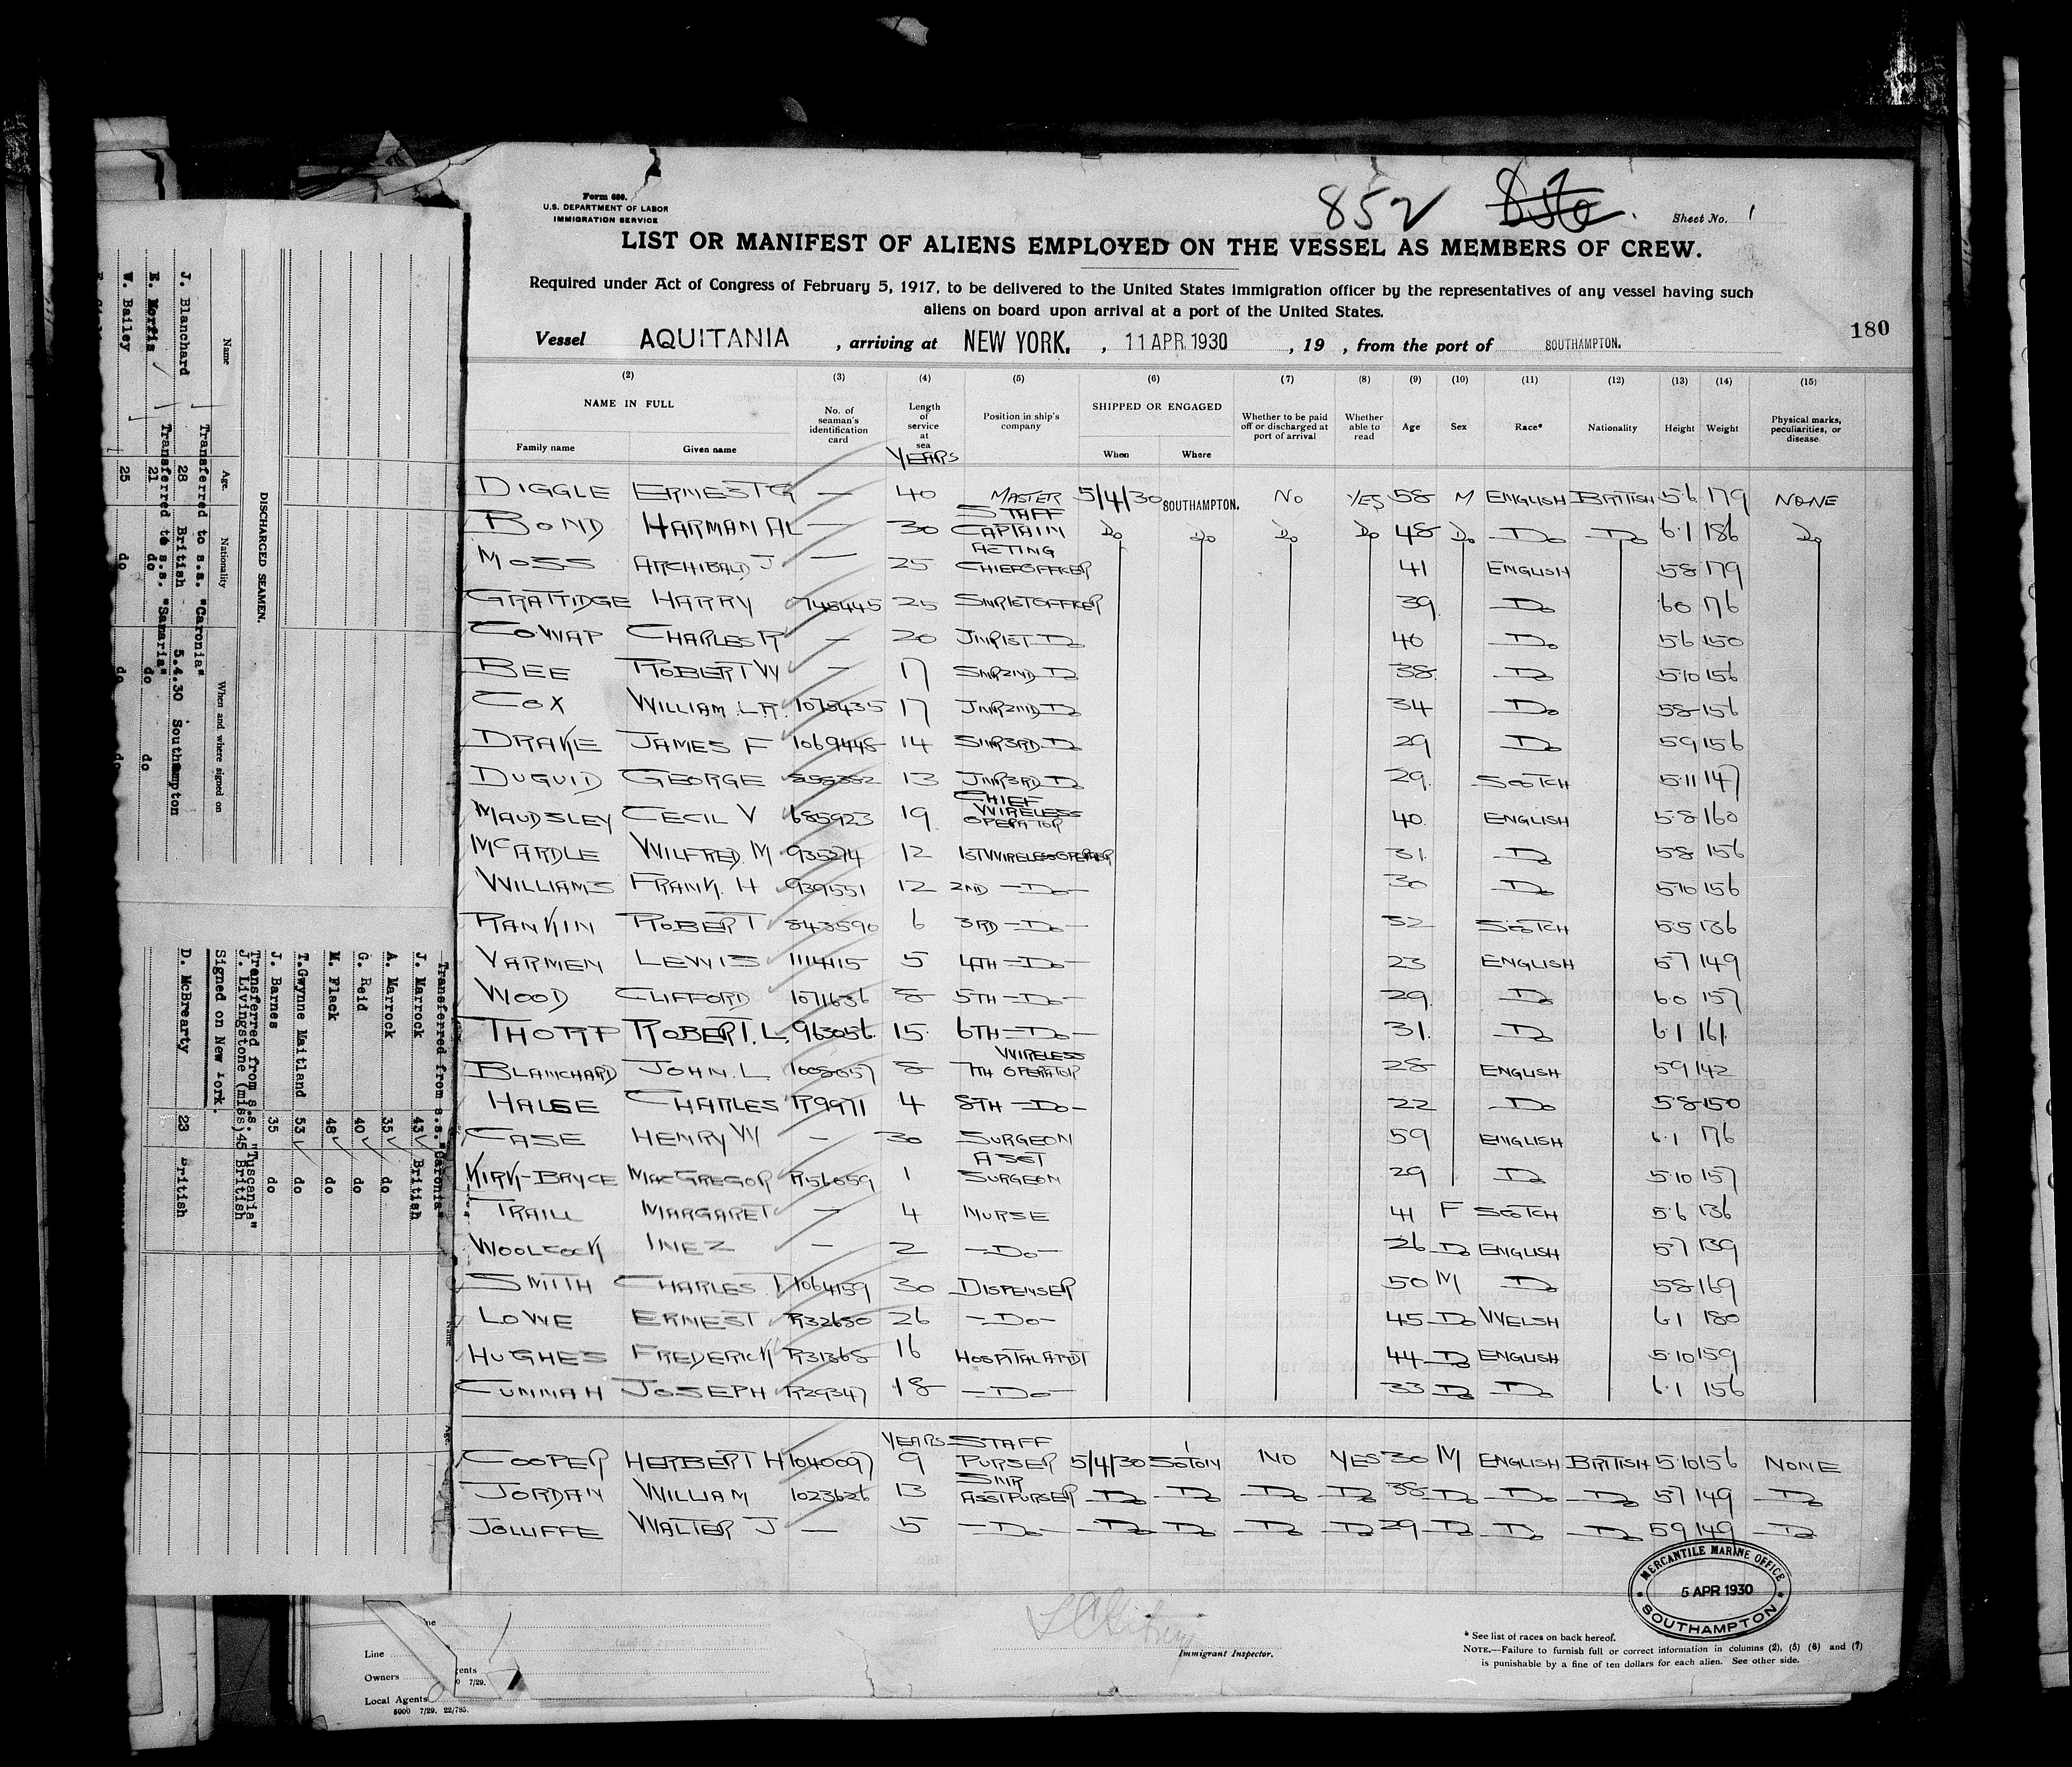 Form 680.
U.S. DEPARTMENT OF LABOR
IMMIGRATION SERVICE
852
Sheet No. 1
LIST OR MANIFEST OF ALIENS EMPLOYED ON THE VESSEL AS MEMBERS OF CREW.
Required under Act of Congress of February 5, 1917, to be delivered to the United States immigration officer by the representatives of any vessel having such
aliens on board upon arrival at a port of the United States.
180
Vessel AQUITANIA , arriving at NEW YORK. , 11 APR 1930 , 19 , from the port of SOUTHAMPTON.
(2) (3) (4) (5) (6) (7) (8) (9) (10) (11) (12) (13) (14) (15)
NAME IN FULL No. of seaman's identification card Length of service at sea Position in ship's company SHIPPED OR ENGAGED Whether to be paid off or discharged at port of arrival Whether able to read Age Sex Race* Nationality Height Weight Physical marks, peculiarities, or disease
Family name Given name YEARS When Where
DIGGLE ERNEST G — 40 MASTER 5/4/30 SOUTHAMPTON. NO YES 58 M ENGLISH BRITISH 5·6 179 NONE
BOND HARMAN AL — 30 STAFF CAPTAIN Do Do Do Do 48 Do Do Do 6·1 186 Do
MOSS ARCHIBALD J — 25 ACTING CHIEF OFFICER 41 ENGLISH 5·8 179
GRATTIDGE HARRY 748445 25 SNR 1ST OFFICER 39 Do 6·0 176
COWAP CHARLES R — 20 JNR 1ST Do 40 Do 5·6 150
BEE ROBERT W — 17 SNR 2ND Do 38 Do 5·10 156
COX WILLIAM L.R. 1073435 17 JNR 2ND Do 34 Do 5·8 156
DRAKE JAMES F 1069448 14 SNR 3RD Do 29 Do 5·9 156
DUGUID GEORGE 13 JNR 3RD Do 29 SCOTCH 5·11 147
MAUDSLEY CECIL V 685923 19 CHIEF WIRELESS OPERATOR 40 ENGLISH 5·8 160
McARDLE WILFRED M 935274 12 1ST WIRELESS OPERATOR 31 Do 5·8 156
WILLIAMS FRANK. H 939551 12 2ND —Do— 30 Do 5·10 156
RANKIN ROBERT 843590 6 3RD —Do— 32 SCOTCH 5·5 136
VARMEN LEWIS 1114115 5 4TH —Do— 23 ENGLISH 5·7 149
WOOD CLIFFORD 1071636 8 5TH —Do— 29 Do 6·0 157
THORP ROBERT. L. 963056 15 6TH —Do— 31 Do 6·1 161
BLANCHARD JOHN. L. 1008057 8 7TH WIRELESS OPERATOR 28 ENGLISH 5·9 142
HALSE CHARLES R9971 4 8TH —Do— 22 Do 5·8 150
CASE HENRY W — 30 SURGEON 59 ENGLISH 6·1 176
KIRK-BRYCE MACGREGOR R56059 1 ASST SURGEON 29 Do 5·10 157
TRAILL MARGARET — 4 NURSE 41 F SCOTCH 5·6 136
WOOLCOCK INEZ — 2 —Do— 26 Do ENGLISH 5·7 139
SMITH CHARLES T 1064159 30 DISPENSER 50 M Do 5·8 169
LOWE ERNEST R32650 26 —Do— 45 Do WELSH 6·1 180
HUGHES FREDERICK R31368 16 HOSPITAL ATTDT 44 Do ENGLISH 5·10 159
CUNNAH JOSEPH R29347 18 —Do— 33 Do Do 6·1 156
COOPER HERBERT H 1040097 YEARS 9 STAFF PURSER 5/4/30 SOTON NO YES 30 M ENGLISH BRITISH 5·10 156 NONE
JORDAN WILLIAM 1023626 13 SNR ASST PURSER Do Do Do Do 38 Do Do Do 5·7 149 Do
JOLLIFFE WALTER J — 5 —Do— Do Do Do Do 29 Do Do Do 5·9 149 Do
MERCANTILE MARINE OFFICE
5 APR 1930
SOUTHAMPTON
Immigrant Inspector.
* See list of races on back hereof.
NOTE.—Failure to furnish full or correct information in columns (2), (5) (6) and (7)
is punishable by a fine of ten dollars for each alien. See other side.
Line
Owners
Local Agents
5000 7/29. 22/785.
ents
0 7/29.
DISCHARGED SEAMEN.
Name Age. Nationality When and where signed on
Transferred to s.s. "Caronia"
J. Blanchard 28 British 5.4.30 Southampton
Transferred to s.s. "Samaria"
E. Morfis 21 do do do
W. Bailey 25 do do do
Name Age.
Transferred from s.s. "Caronia"
J. Marrock 43 British
A. Marrock 35 do
G. Reid 40 do
M. Flack 48 do
T. Gwynne Maitland 53 do
J. Barnes 35 do
Transferred from s.s. "Tuscania"
J. Livingstone (miss) 45 British
Signed on New York.
D. McBrearty 23 British